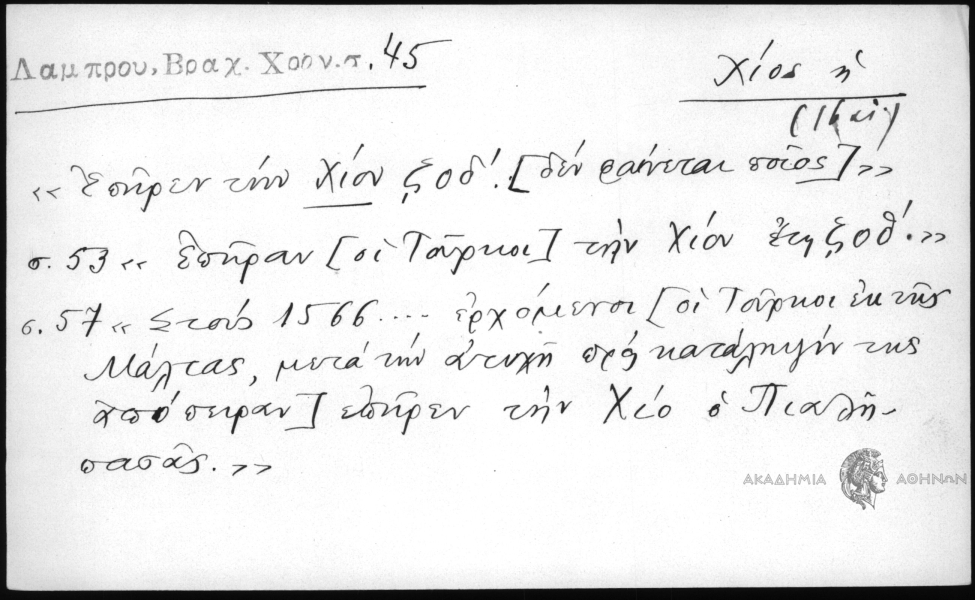 Λαμπρου, Βραχ. Χρον. σ. 45
Χίος ἡ
(16 αἰ)
«Ἐπῆρεν τήν Χίον ζοδ'. [δέν φαίνεται ποῖος]»
σ. 53 « Ἐπῆραν [οἱ Τοῦρκοι] τήν Χίον ἔτη ζοδ'.»
σ. 57 « Στούς 1566.... ἐρχόμενοι [οἱ Τοῦρκοι ἐκ τῆς
Μάλτας, μετά τήν ἀτυχῆ πρός κατάληψίν της
ἀπόπειραν] ἐπῆρεν τήν Χίο ὁ Πιαλῆ-
πασᾶς.»
ΑΚΑΔΗΜΙΑ ΑΘΗΝΩΝ